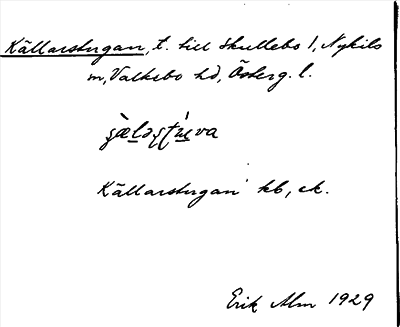 Källarstugan, t. till Skullebo 1, Nykils
sn, Valkebo hd, Österg. l.
Källarstugan kb, ek.
Erik Alm 1929